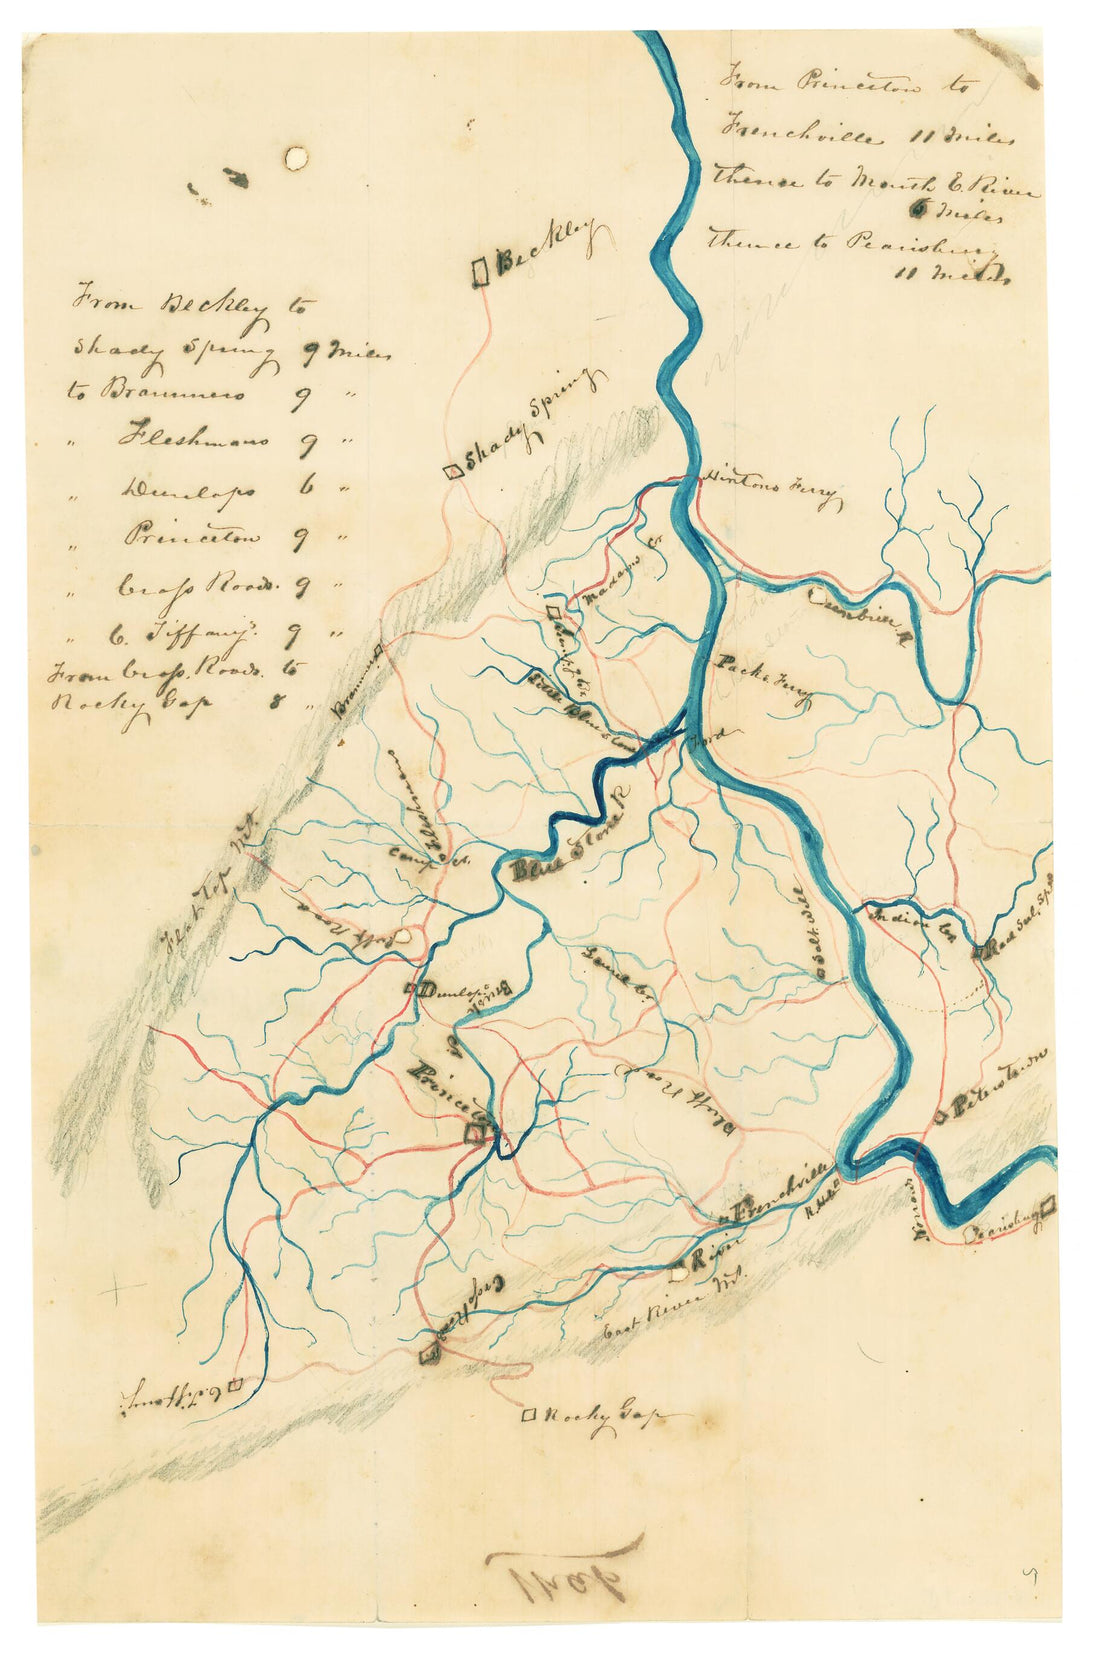 From Princeton to
Frenchville 11 Miles
thence to Mouth E. River
6 Miles
thence to Pearisburg
11 miles
Beckley
From Beckley to
Shady Spring 9 Miles
to Brammers 9 "
" Fleshmans 9 "
" Dunlops 6 "
" Princeton 9 "
" Cross Roads. 9 "
" C. Tiffany's. 9 "
From Cross. Roads. to
Rocky Gap 8 "
Shady Spring
Hintons Ferry
Madams Cr
Greenbrier R
Jumpg Br
Packs Ferry
Brammers
Little Blue Stone
Ford
Fleshmans
Camp Cr.
Blue Stone R
Flat Top Mt.
Ruff Road
Salt Well
Indian Cr
Red Sul. Sprs
Laurel Cr.
Dunlops
Brush Cr.
Princeton
Ruff Road
Peterstown
Frenchville
Narrows
Pearisburg
River
East River Mt.
Cross Roads
C. Tiffany's
Rocky Gap
Map